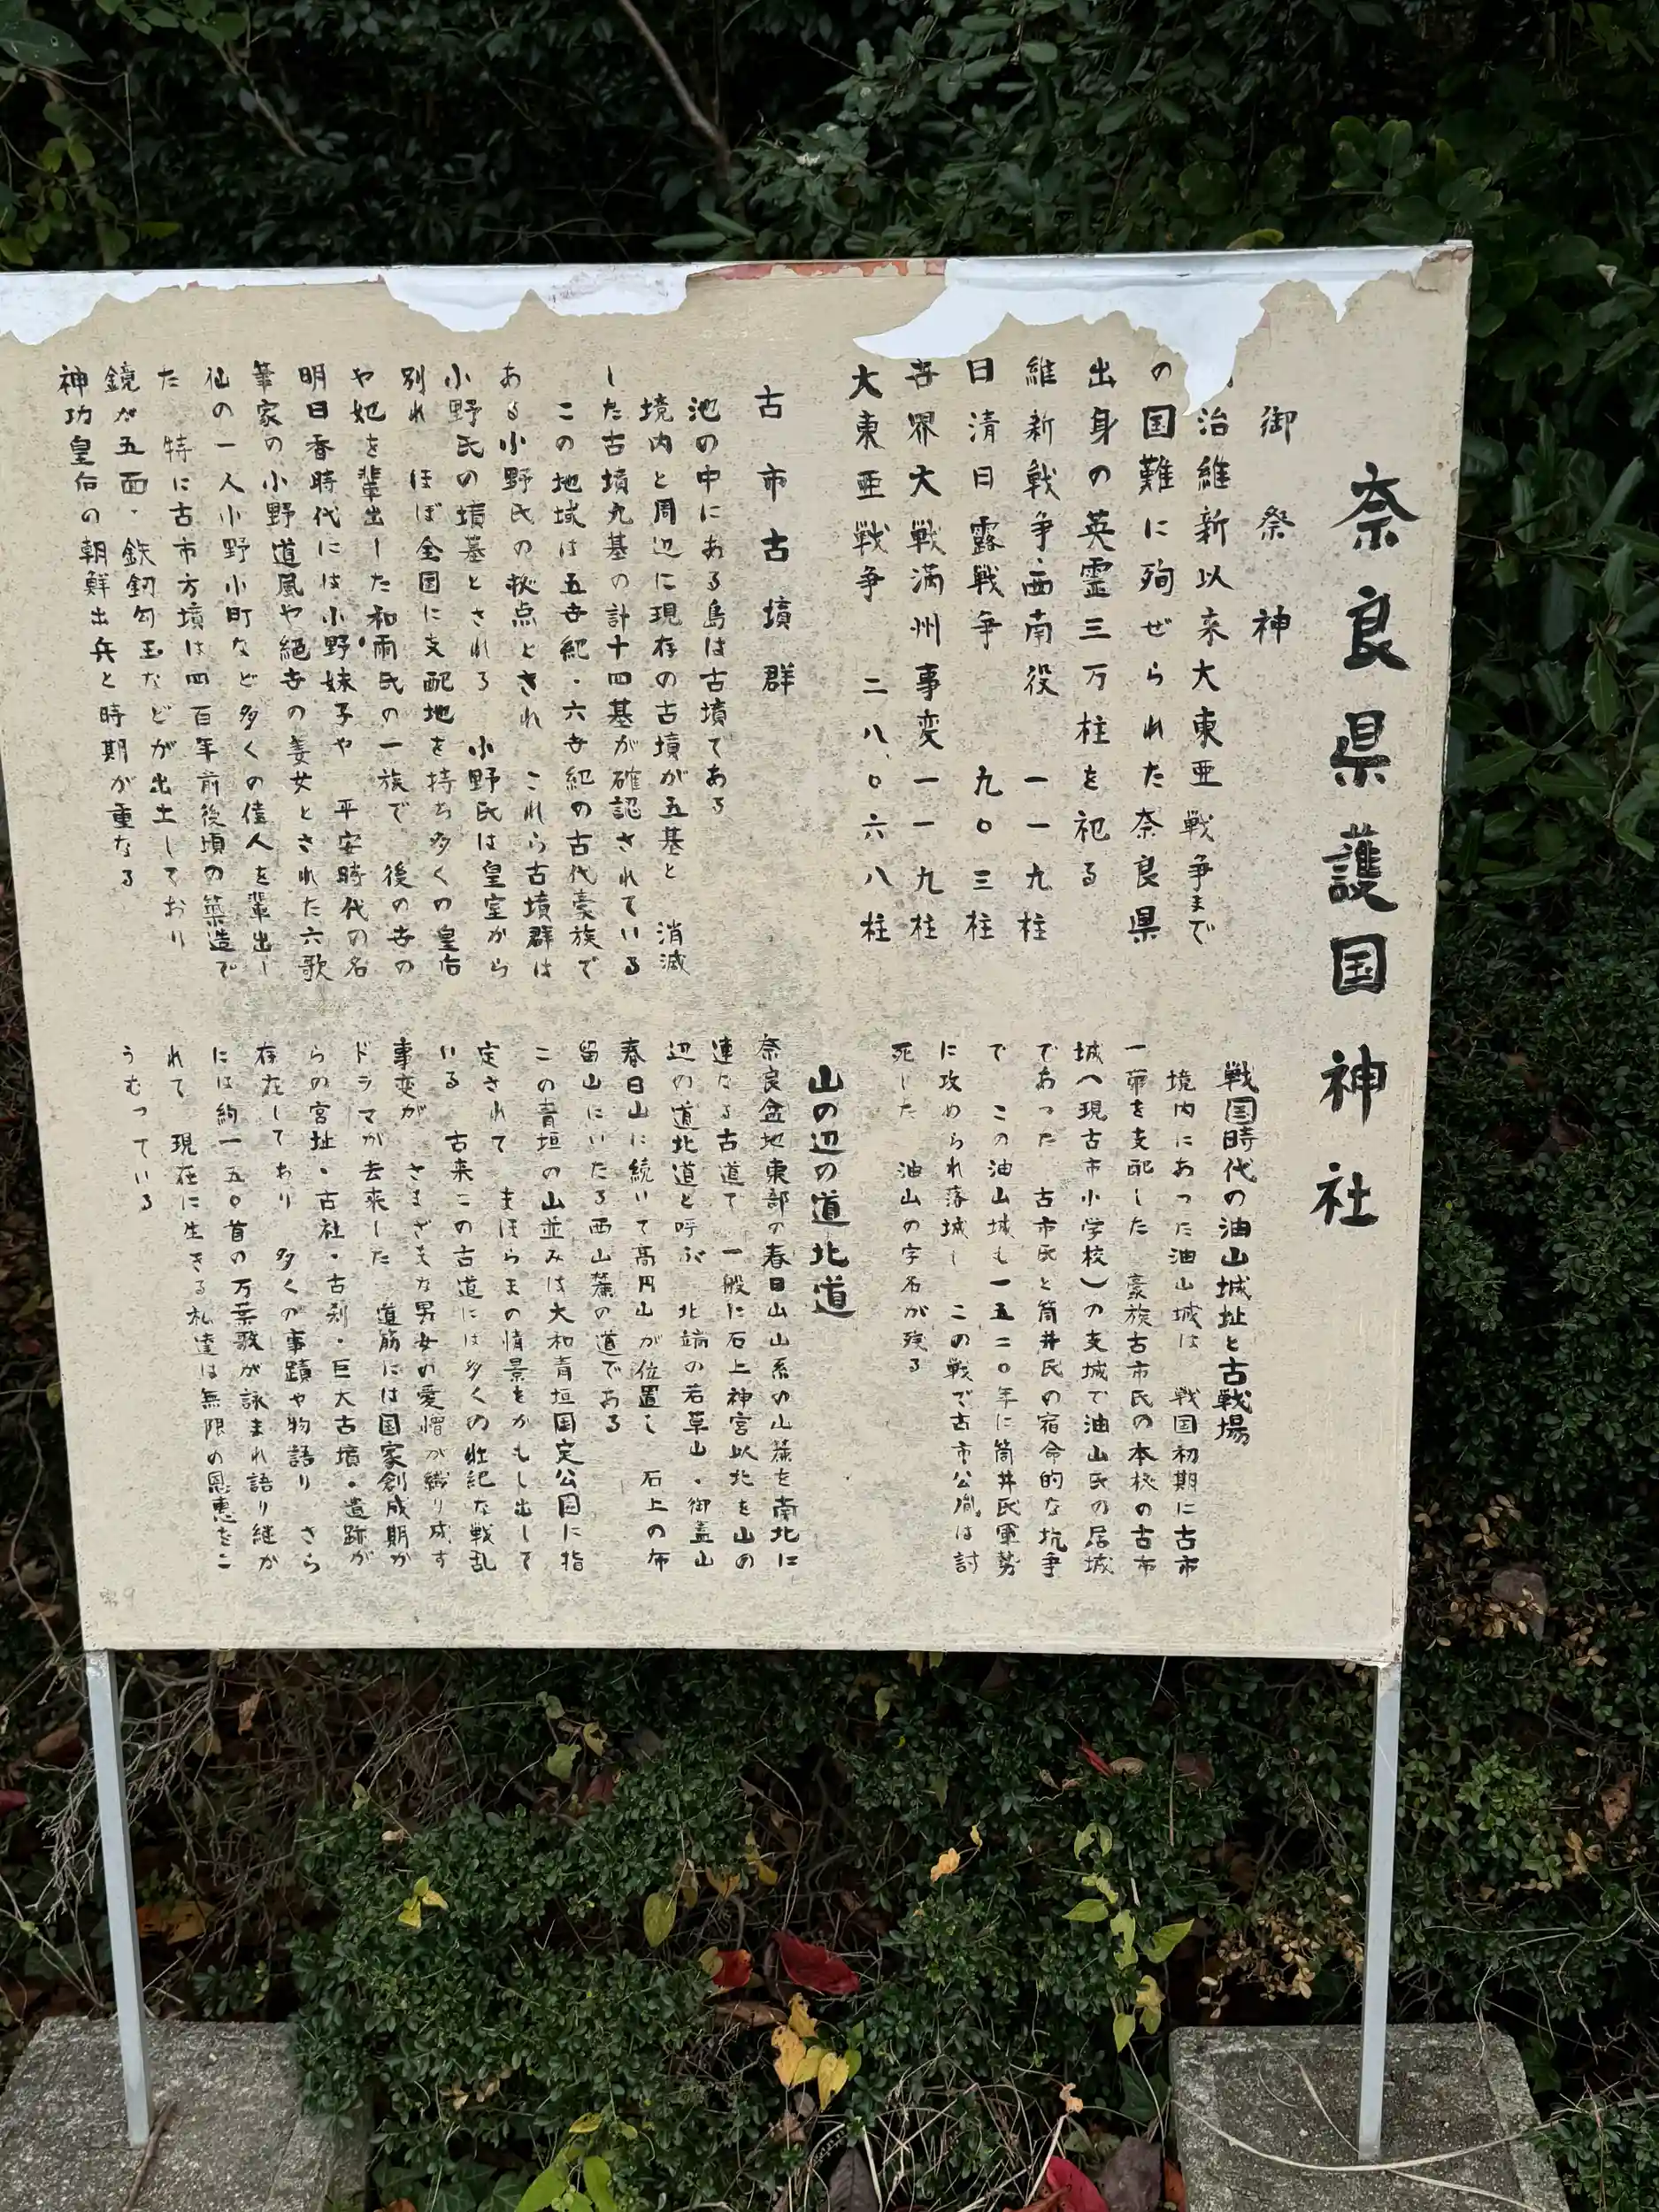 奈良県護国神社
御祭神
治維新以来大東亜戦争まで
の国難に殉ぜられた奈良県
出身の英霊三万柱を祀る
維新戦争・西南役 一一九柱
日清日露戦争 九〇三柱
吾界大戦満州事変一一九柱
大東亜戦争 二八、〇六八柱
古市古墳群
池の中にある島は古墳である
境内と周辺に現存の古墳が五基と 消滅
した古墳九基の計十四基が確認されている
この地域は五世紀・六世紀の古代豪族で
ある小野氏の拠点とされ これら古墳群は
小野氏の墳墓とされる 小野氏は皇室から
別れ ほぼ全国に支配地を持ち多くの皇后
や妃を輩出した和珥氏の一族で 後の世の
明日香時代には小野妹子や 平安時代の名
筆家の小野道風や絶世の美女とされた六歌
仙の一人小野小町など多くの偉人を輩出し
た 特に古市方墳は四百年前後頃の築造で
鏡が五面・鉄釼勾玉などが出土しており
神功皇后の朝鮮出兵と時期が重なる
戦国時代の油山城址と古戦場
境内にあった油山城は 戦国初期に古市
一帯を支配した 豪族古市氏の本校の古市
城(現古市小学校)の支城で油山氏の居城
であった 古市氏と筒井氏の宿命的な坑争
で この油山城も一五二〇年に筒井氏軍勢
に攻められ落城し この戦で古市公胤は討
死した 油山の字名が残る
山の辺の道北道
奈良盆地東部の春日山山系の山麓を南北に
連なる古道で 一般に石上神宮以北を山の
辺の道北道と呼ぶ 北端の若草山・御蓋山
春日山に続いて高円山が位置し 石上の布
留山にいたる西山麓の道である
この青垣の山並みは大和青垣国定公園に指
定されて まほらまの情景をかもし出して
いる 古来この古道には多くの壮絶な戦乱
事変が さまざまな男女の愛憎が織り成す
ドラマが去来した 道筋には国家創成期か
らの宮址・古社・古刹・巨大古墳・遺跡が
存在しており 多くの事蹟や物語り さら
には約一五〇首の万葉歌が詠まれ語り継か
れて 現在に生きる私達は無限の恩恵をこ
うむっている